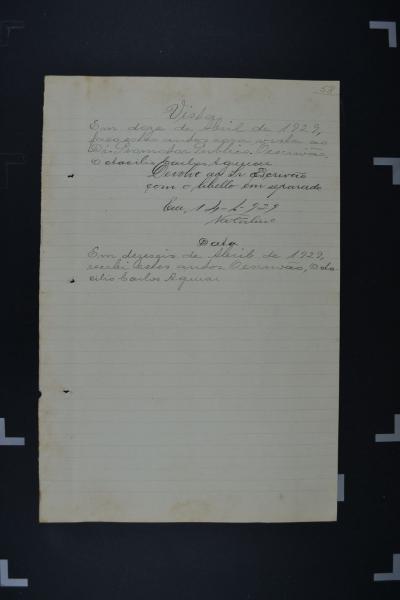 58
Vista
Em doze de Abril de 1929,
faço estes autos com vista ao
Dr. Promotor Publico. O escrivão,
Octacilio Carlos Aguiar
Devolvo ao Sr Escrivão
com o libello em separado
14-4-929
Data
Em dezeseis de Abril de 1929,
recebi estes autos. O escrivão, Octa-
cilio Carlos Aguiar